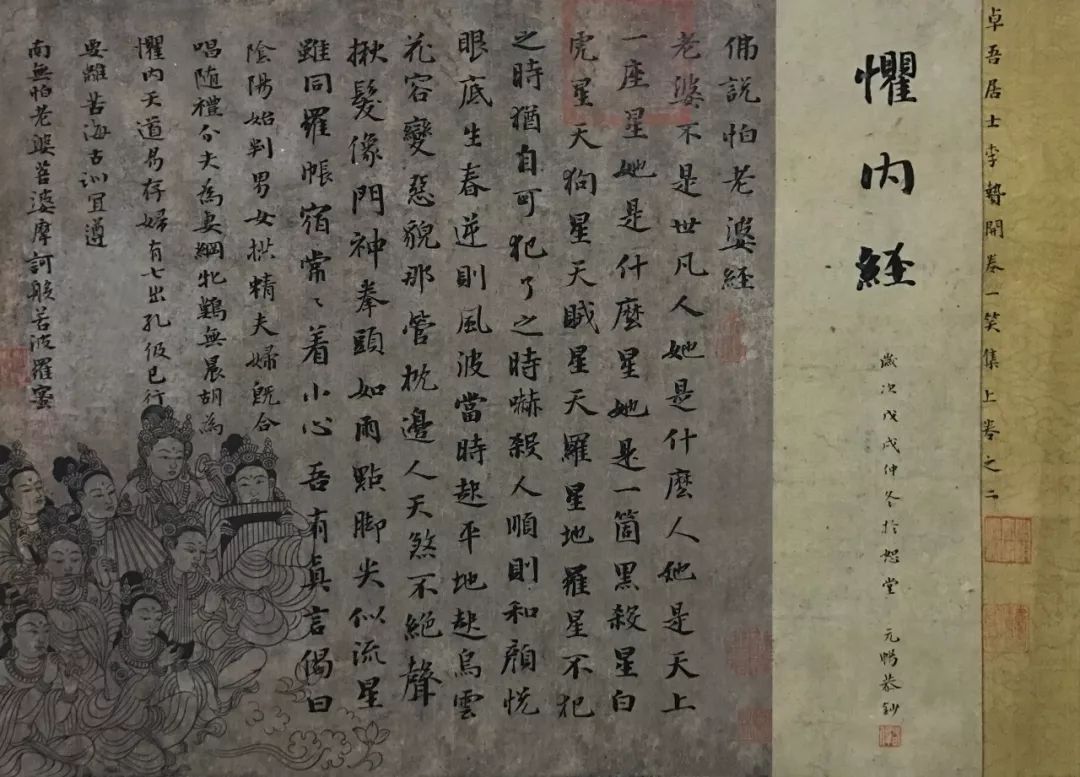 卓吾居士李贄開卷一笑集上卷之二
懼内經
歲次戊戌仲冬於恕堂 元暢恭鈔
佛說怕老婆經
老婆不是世凡人她是什麼人她是天上
一座星她是什麼星她是一箇黑殺星白
虎星天狗星天賊星天羅星地羅星不犯
之時猶自可犯了之時嚇殺人順則和顏悅
眼底生春逆則風波當時起平地起烏雲
花容變惡貌那管枕邊人天煞不絕聲
揪髮像門神拳頭如雨點脚尖似流星
雖同羅帳宿常〻着小心 吾有真言偈曰
陰陽始判男女拱精夫婦既合
唱隨禮分夫為妻綱牝鷄無晨胡為
懼内天道易存婦有七出孔伋已行
要離苦海古訓宜遵
南無怕老婆菩婆摩訶般若波羅蜜